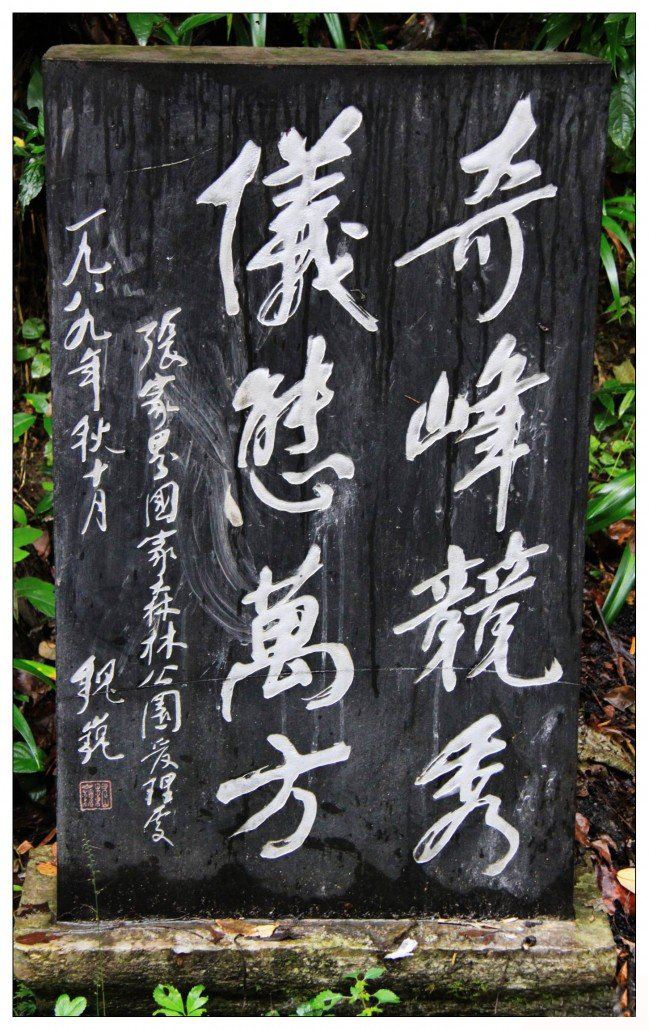 奇峰競秀
儀態萬方
張家界國家森林公園管理處
一九八九年秋十月
魏巍